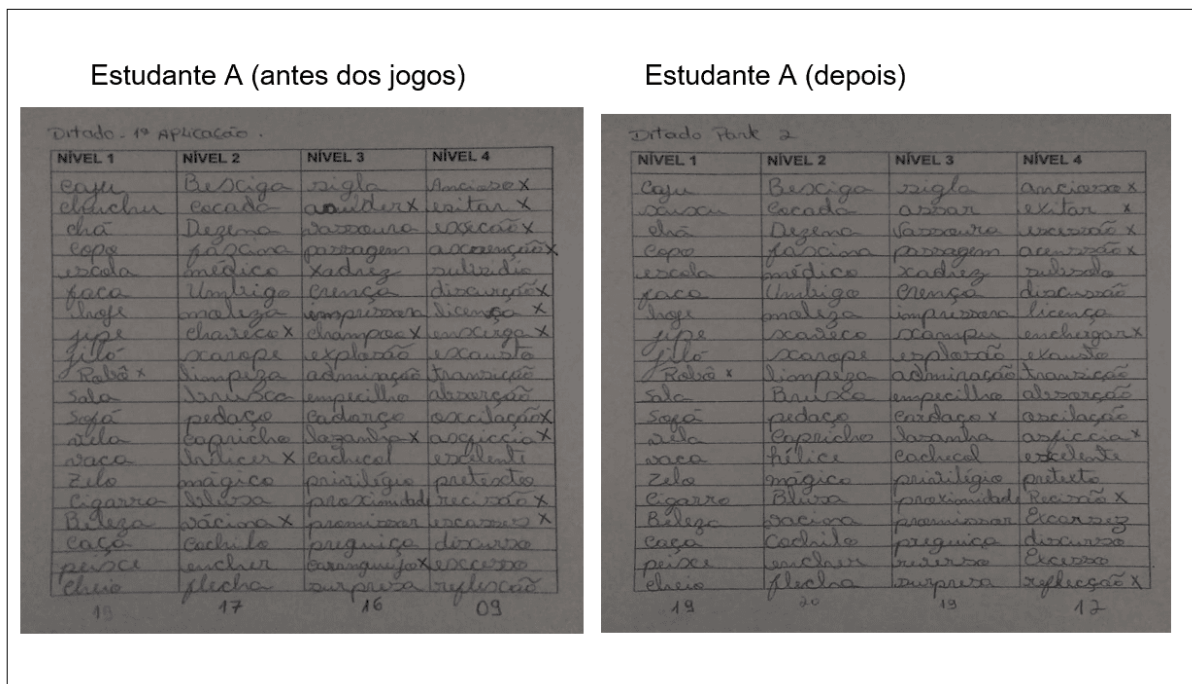 Estudante A (antes dos jogos)
Ditado - 1ª Aplicação.
NÍVEL 1 NÍVEL 2 NÍVEL 3 NÍVEL 4
caju Bexiga sigla Ancioso x
chuchu cocada x exitar x
chá Dezena vassoura execão x
copo fascina passagem x
escola médico xadrez subsidio
faca Umbigo crença discurção x
hoje moleza impressora licença x
jipe chaveco x champoo x enxerga x
jiló xarope explosão exausto
Robô x limpeza admiração transição
Sala brusca empecilho absorção
Sofá pedaço cadarço oscilação x
vela capricho lazanha x asficcia x
vaca x cachecol excelente
Zelo mágico privilégio pretexto
Cigarro blusa proximidade recisão x
Beleza vácina x promissor escasses x
caça Cochilo preguiça discurso
peixe encher caranguijo x excesso
cheio flecha surpresa reflexão
19 17 16 09
Estudante A (depois)
Ditado Part 2
NÍVEL 1 NÍVEL 2 NÍVEL 3 NÍVEL 4
Caju Bexiga sigla ancioso x
xuxu Cocada assar exitar x
chá Dezena Vassoura x
copo fascina passagem acenssão x
escola médico xadrez
faca Umbigo Crença discussão
hoje moleza impressora licença
jipe xaveco xampu enchergar x
jiló xarope explosão exausto
Robô x limpeza admiração transição
Sala Brusca empecilho absorção
Sofá pedaço cardaço x oscilação
vela Capricho lasanha asficcia x
vaca hélice cachecol excelente
Zelo mágico privilégio pretexto
Cigarro Blusa proximidade Recisão x
Beleza vacina promissor Escassez
caça Cochilo preguiça discurso
peixe encher reverso Excesso
cheio flecha surpresa reflecção x
19 20 19 12